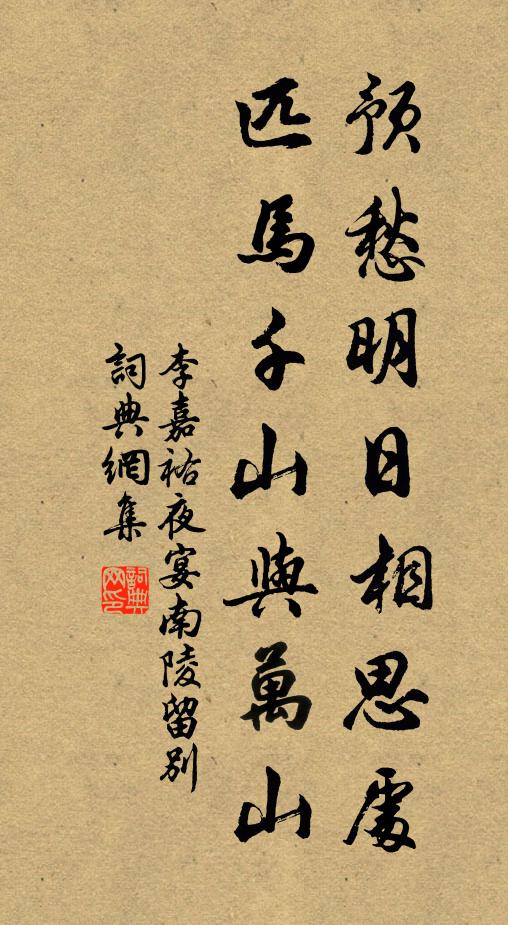 預愁明日相思處
匹馬千山與萬山
李嘉祐夜宴南陵留別
詞典網集
詞典
网印